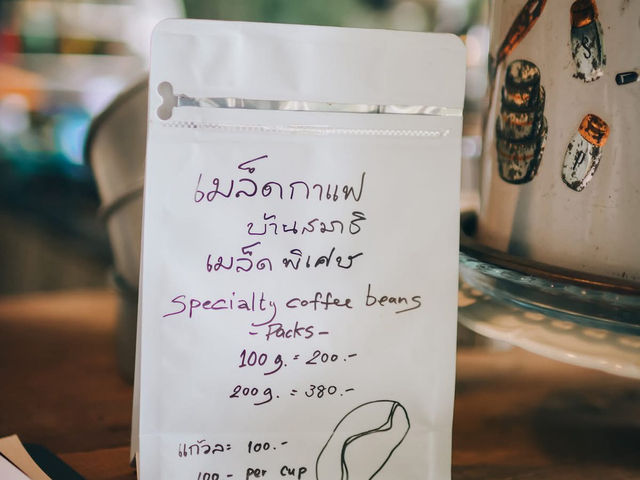 เมล็ดกาแฟ
บ้านสมาธิ
เมล็ดพิเศษ
Specialty coffee beans
- Packs -
100 g. = 200.-
200 g. = 380.-
แก้วละ 100.-
100.- per cup